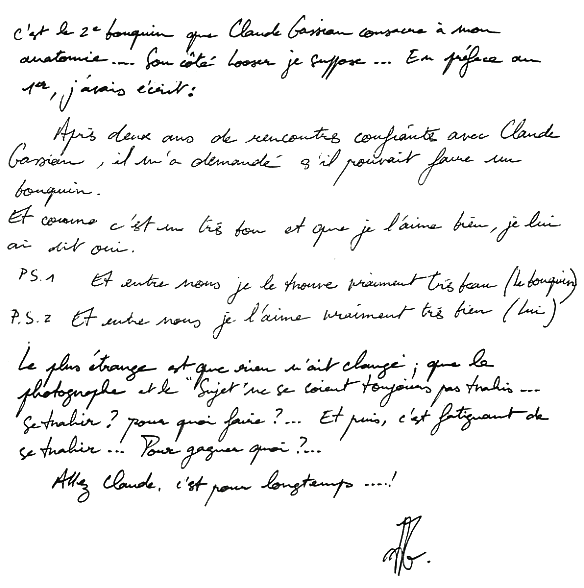 c'est le 2e bouquin que Claude Gassian consacre à mon
anatomie.... Son côté looser je suppose... En préface au
1er, j'avais écrit :
Après deux ans de rencontres confiante avec Claude
Gassian, il m'a demandé s'il pouvait faire un
bouquin.
Et comme c'est un très bon et que je l'aime bien, je lui
ai dit oui.
P.S.1 Et entre nous je le trouve vraiment très beau (le bouquin)
P.S.2 Et entre nous je l'aime vraiment très bien (lui)
Le plus étrange est que rien n'ait changé ; que le
photographe et le "sujet" ne se soient toujours pas trahis...
se trahir ? pour quoi faire ?... Et puis, c'est fatiguant de
se trahir... Pour gagner quoi ?...
Allez Claude, c'est pour longtemps.....!